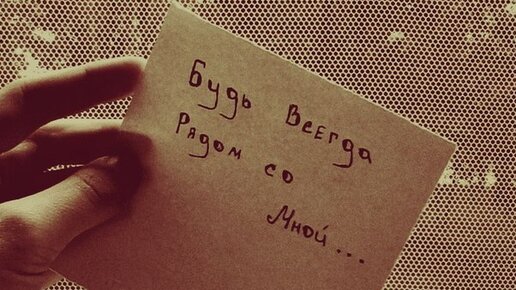 Будь Всегда
Рядом со
Мной...